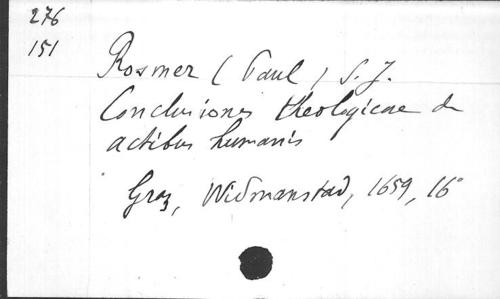 276
151
Rosmer (Paul) S. J.
Conclusiones theologicae de
actibus humanis
Graz, Widmanstad, 1659, 16°